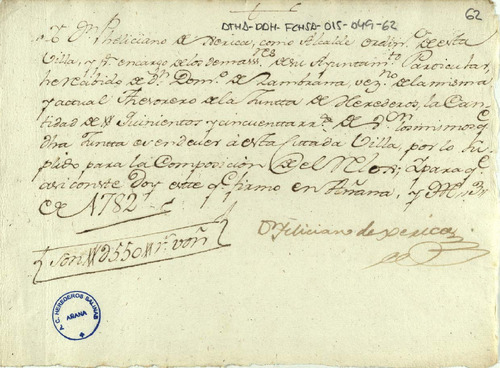 62
DTHA-DDH-FCHSA-015-049-62
Dn. Pheliciano de Xerica, como Alcalde ordinº. de esta
Villa, y pr. encargo de los demas Sres. de su Ayuntamto. Particular,
he recibido de Dn. Domº. de Zambrana, vezno. de la misma
y actual Thesorero de la Junta de Herederos, la Can
tidad de Quinientos y cincuenta rs. de vn. los mismos qe.
dha Junta es en dever à esta citada Villa, por lo su
plido para la Composicion del Relox; y para qe.
asi conste Doy este qe. firmo en Añana, y
de 1782
Son 550 rs. von
Dn. Feliciano de Xerica
Y C. HEREDEROS SALINAS
AÑANA